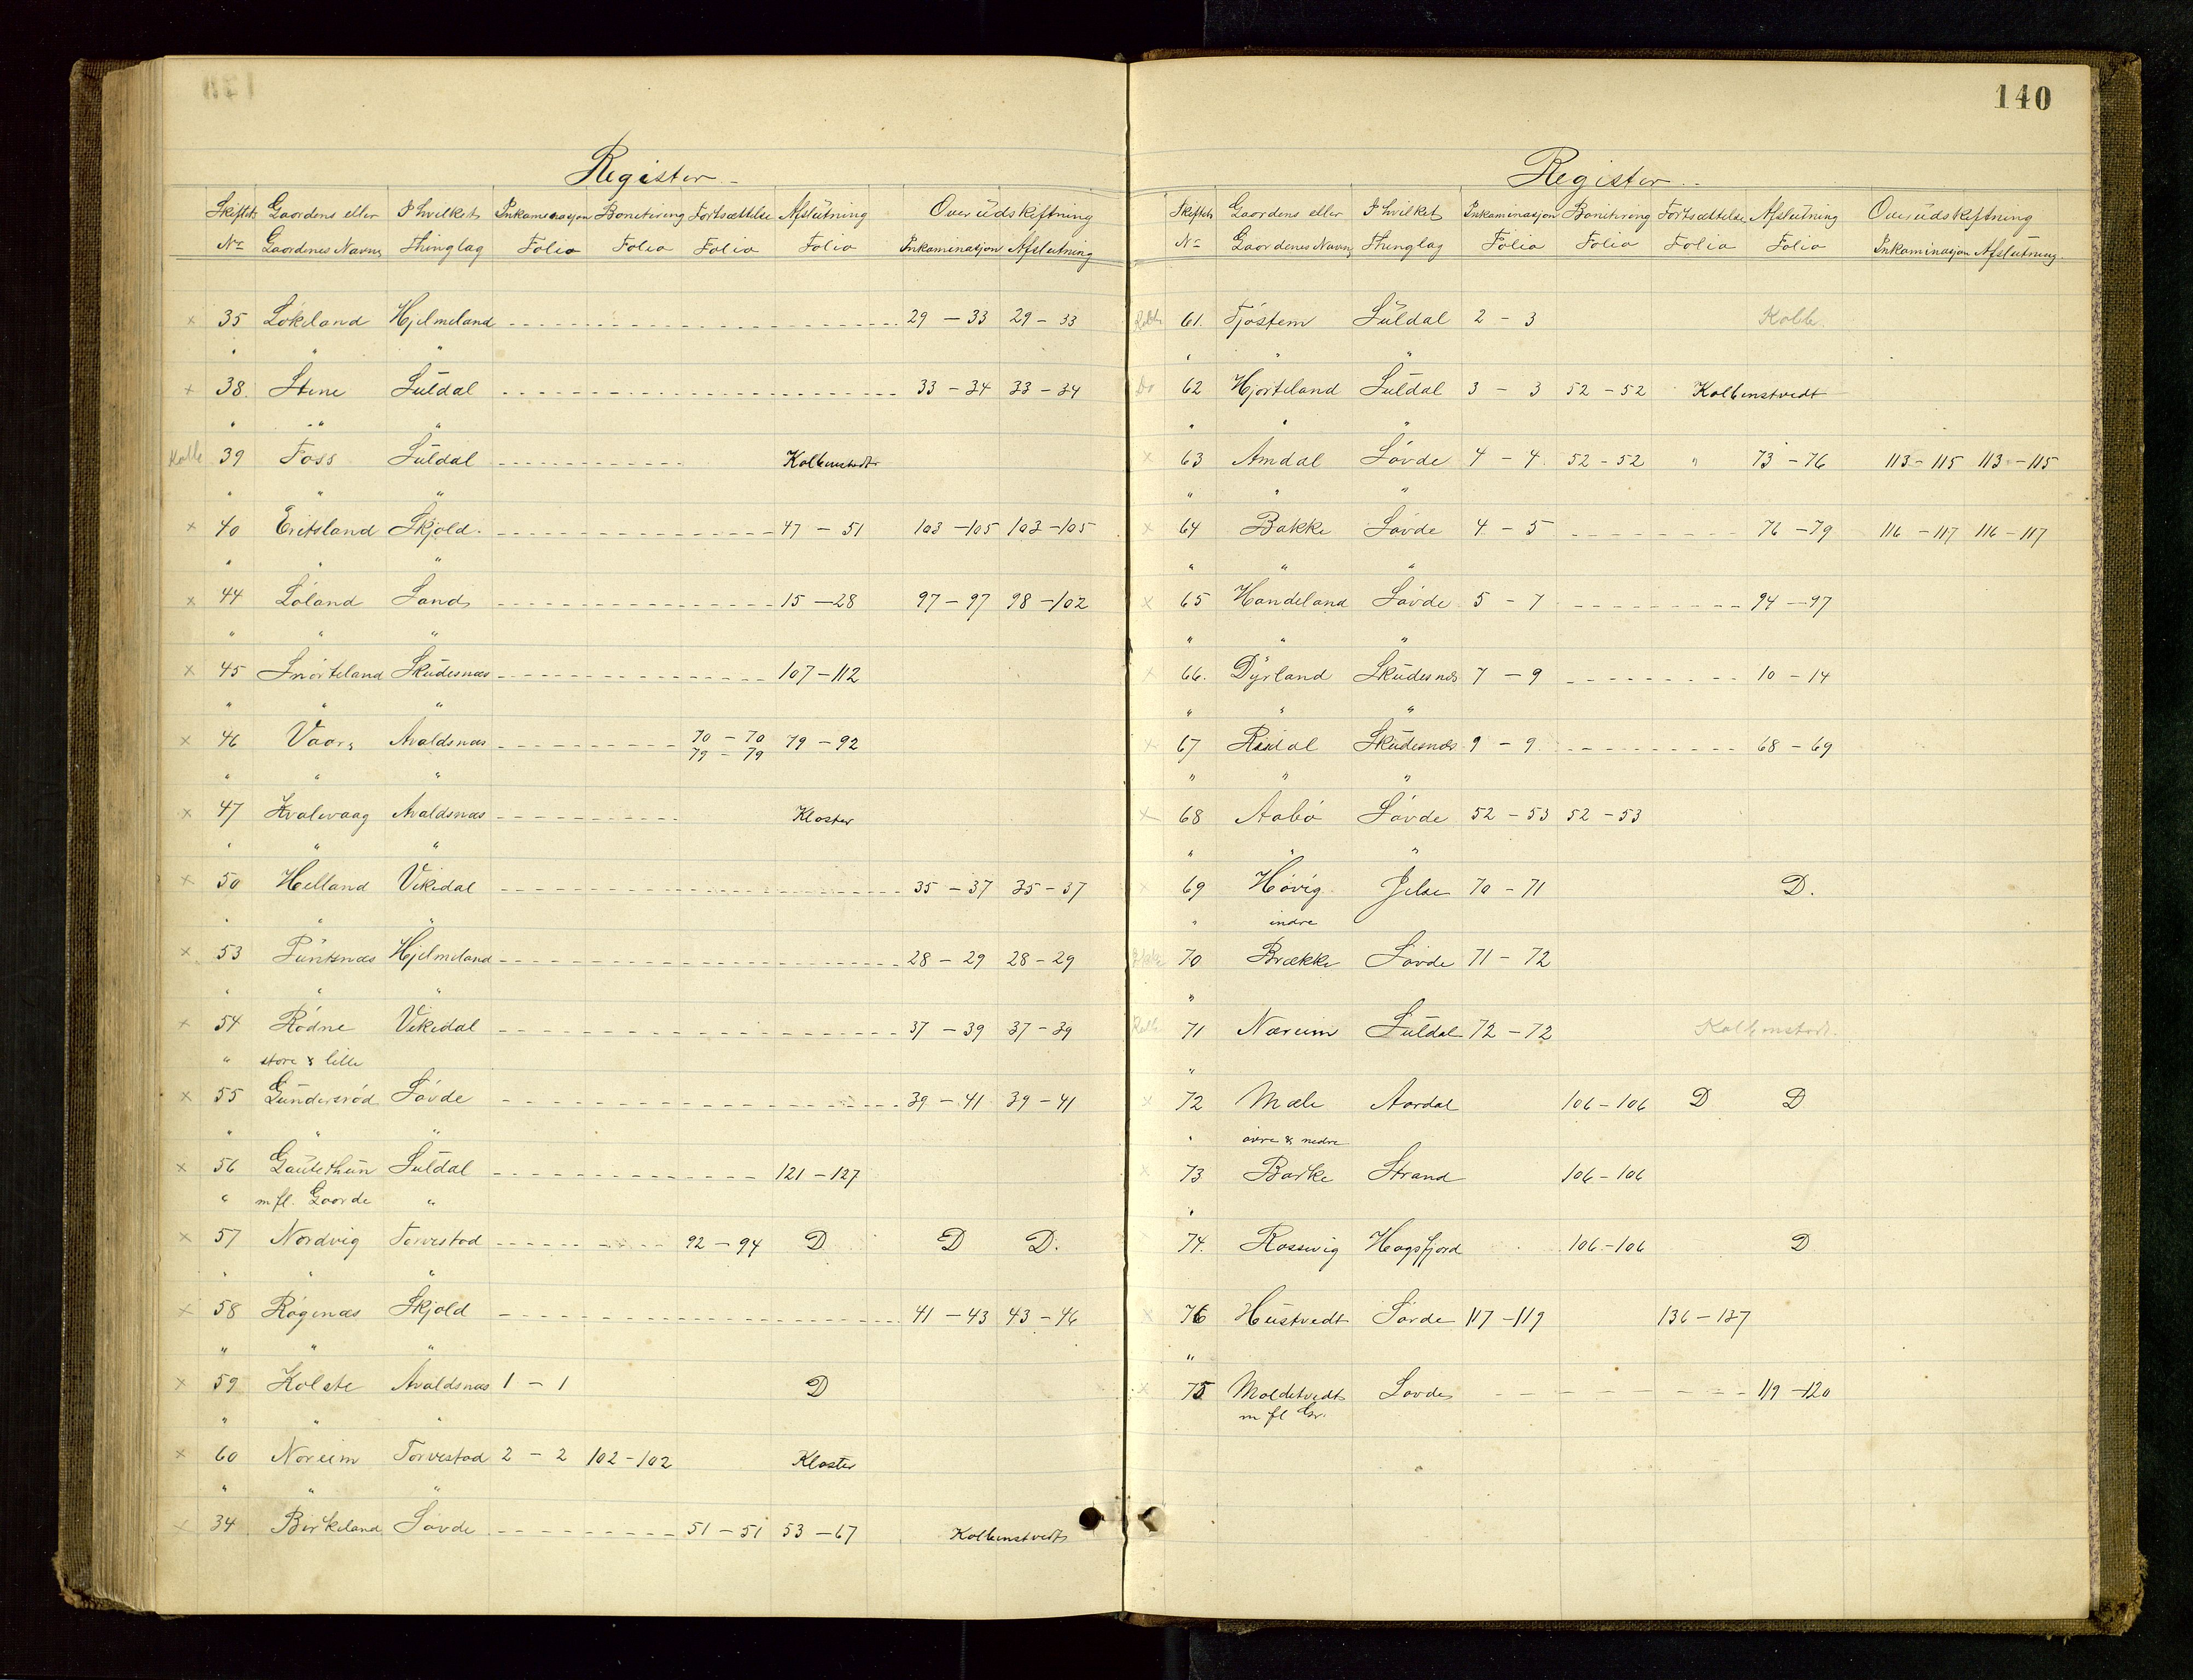 Register
Skifteh Gaardens eller I hvilket Inkaminasjon Bonitering Fortsættelse Afslutning Overüdskiftning
No Gaardenes Navn Thinglag Folio Folio Folio Folio Inkaminasjon Afslutning
x 35 Lökeland Hjelmeland 29 - 33 29 - 33
" " "
x 38. Stene Süldal 33 - 34 33 - 34
" " "
Kolb 39 Foss Süldal Kolbenstvedt
" " "
x 40 Eritsland Skjold. 47 - 51 103 - 105 103 - 105
" " "
x 44 Löland Sand 15 - 28 97 - 97 98 - 102
" " "
x 45 Snörteland Skudesnæs 107 - 112
" " "
x 46 Vaare Avaldsnæs 70 - 70 79 - 92
79 - 79
" " "
x 47 Kvalevaag Avaldsnæs Kloster
" " "
x 50 Helland Vikedal 35 - 37 35 - 37
" " "
x 53 Püntsnæs Hjelmeland 28 - 29 28 - 29
" " "
x 54 Rödne Vikedal 37 - 39 37 - 39
" store & lille
x 55 Gündersröd Sövde 39 - 41 39 - 41
" " "
x 56 Gautethün Süldal 121 - 127
" m fl. Gaarde "
x 57 Nordvig Torvestad 92 - 94 D D D.
" " "
x 58 Rögenæs Skjold 41 - 43 43 - 46
" " "
x 59 Kolste Avaldsnæs 1 - 1 D
" " "
x 60 Noreim Torvestad 2 - 2 102 - 102 Kloster
" " "
x 34 Birkeland Sövde 51 - 51 53 - 67 Kolbenstvedt
140
Register
Skifteh Gaardens eller I hvilket Inkaminasjon Bonitering Fortsættelse Afslutning Overüdskiftning
No Gaardenes Navn Thinglag Folio Folio Folio Folio Inkaminasjon Afslutning
Kolb 61. Tjöstem Süldal 2 - 3 Kolb.
" " "
Do 62 Hjorteland Süldal 3 - 3 52 - 52 Kolbenstvedt
" " "
x 63 Amdal Sövde 4 - 4 52 - 52 " 73 - 76 113 - 115 113 - 115
" " "
x 64 Bakke Sövde 4 - 5 76 - 79 116 - 117 116 - 117
" " "
x 65 Handeland Sövde 5 - 7 94 - 97
" " "
x 66. Dyrland Skudesnæs 7 - 9 10 - 14
" " "
x 67 Risdal Skudesnæs 9 - 9 68 - 69
" " "
x 68 Aabö Sövde 52 - 53 52 - 53
" " "
x 69 Hövig Jelse 70 - 71 D.
" indre
70 Brække Sövde 71 - 72
"
Kolb 71 Næreim Süldal 72 - 72 Kolbenstvedt.
"
x 72 Mæle Aardal 106 - 106 D D
" övre & nedre
x 73 Barke Strand 106 - 106
"
74. Rossvig Högsfjord 106 - 106 D
x 76 Hüstvedt Sövde 117 - 119 136 - 137
"
x 75 Moldetvedt Sövde 119 - 120
m fl Gr.